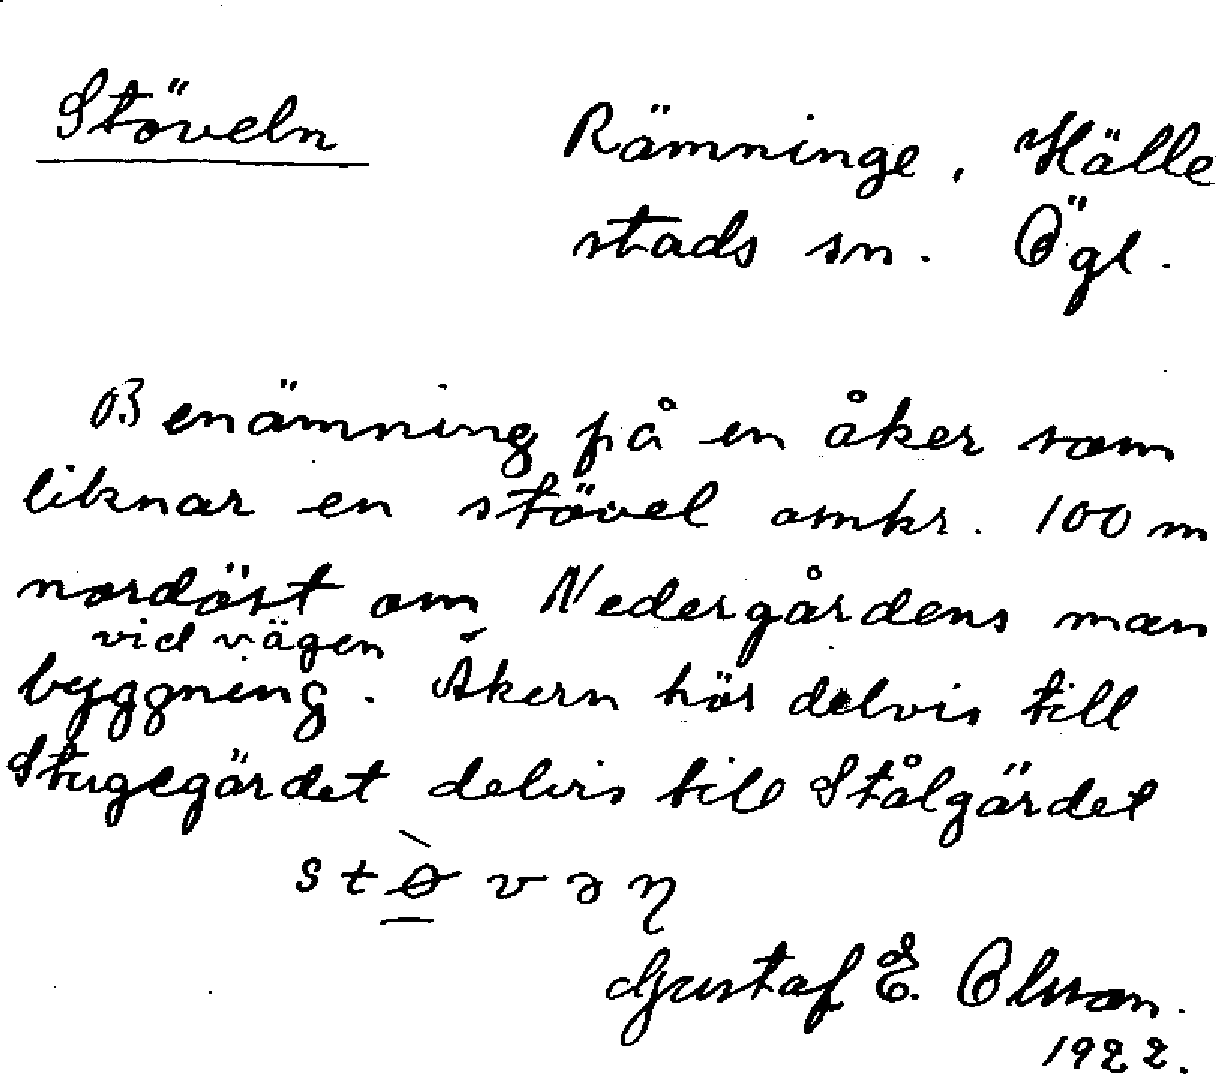 Stöveln
Rämninge, Hälle
stads sn. Ögl.
Benämning på en åker som
liknar en stövel omkr. 100 m
nordöst om Nedergårdens man
vid vägen
byggning. Åkern hör delvis till
Stugegärdet delvis till Stålgärdet
stø̀vəη
Gustaf E. Olsson.
1922.